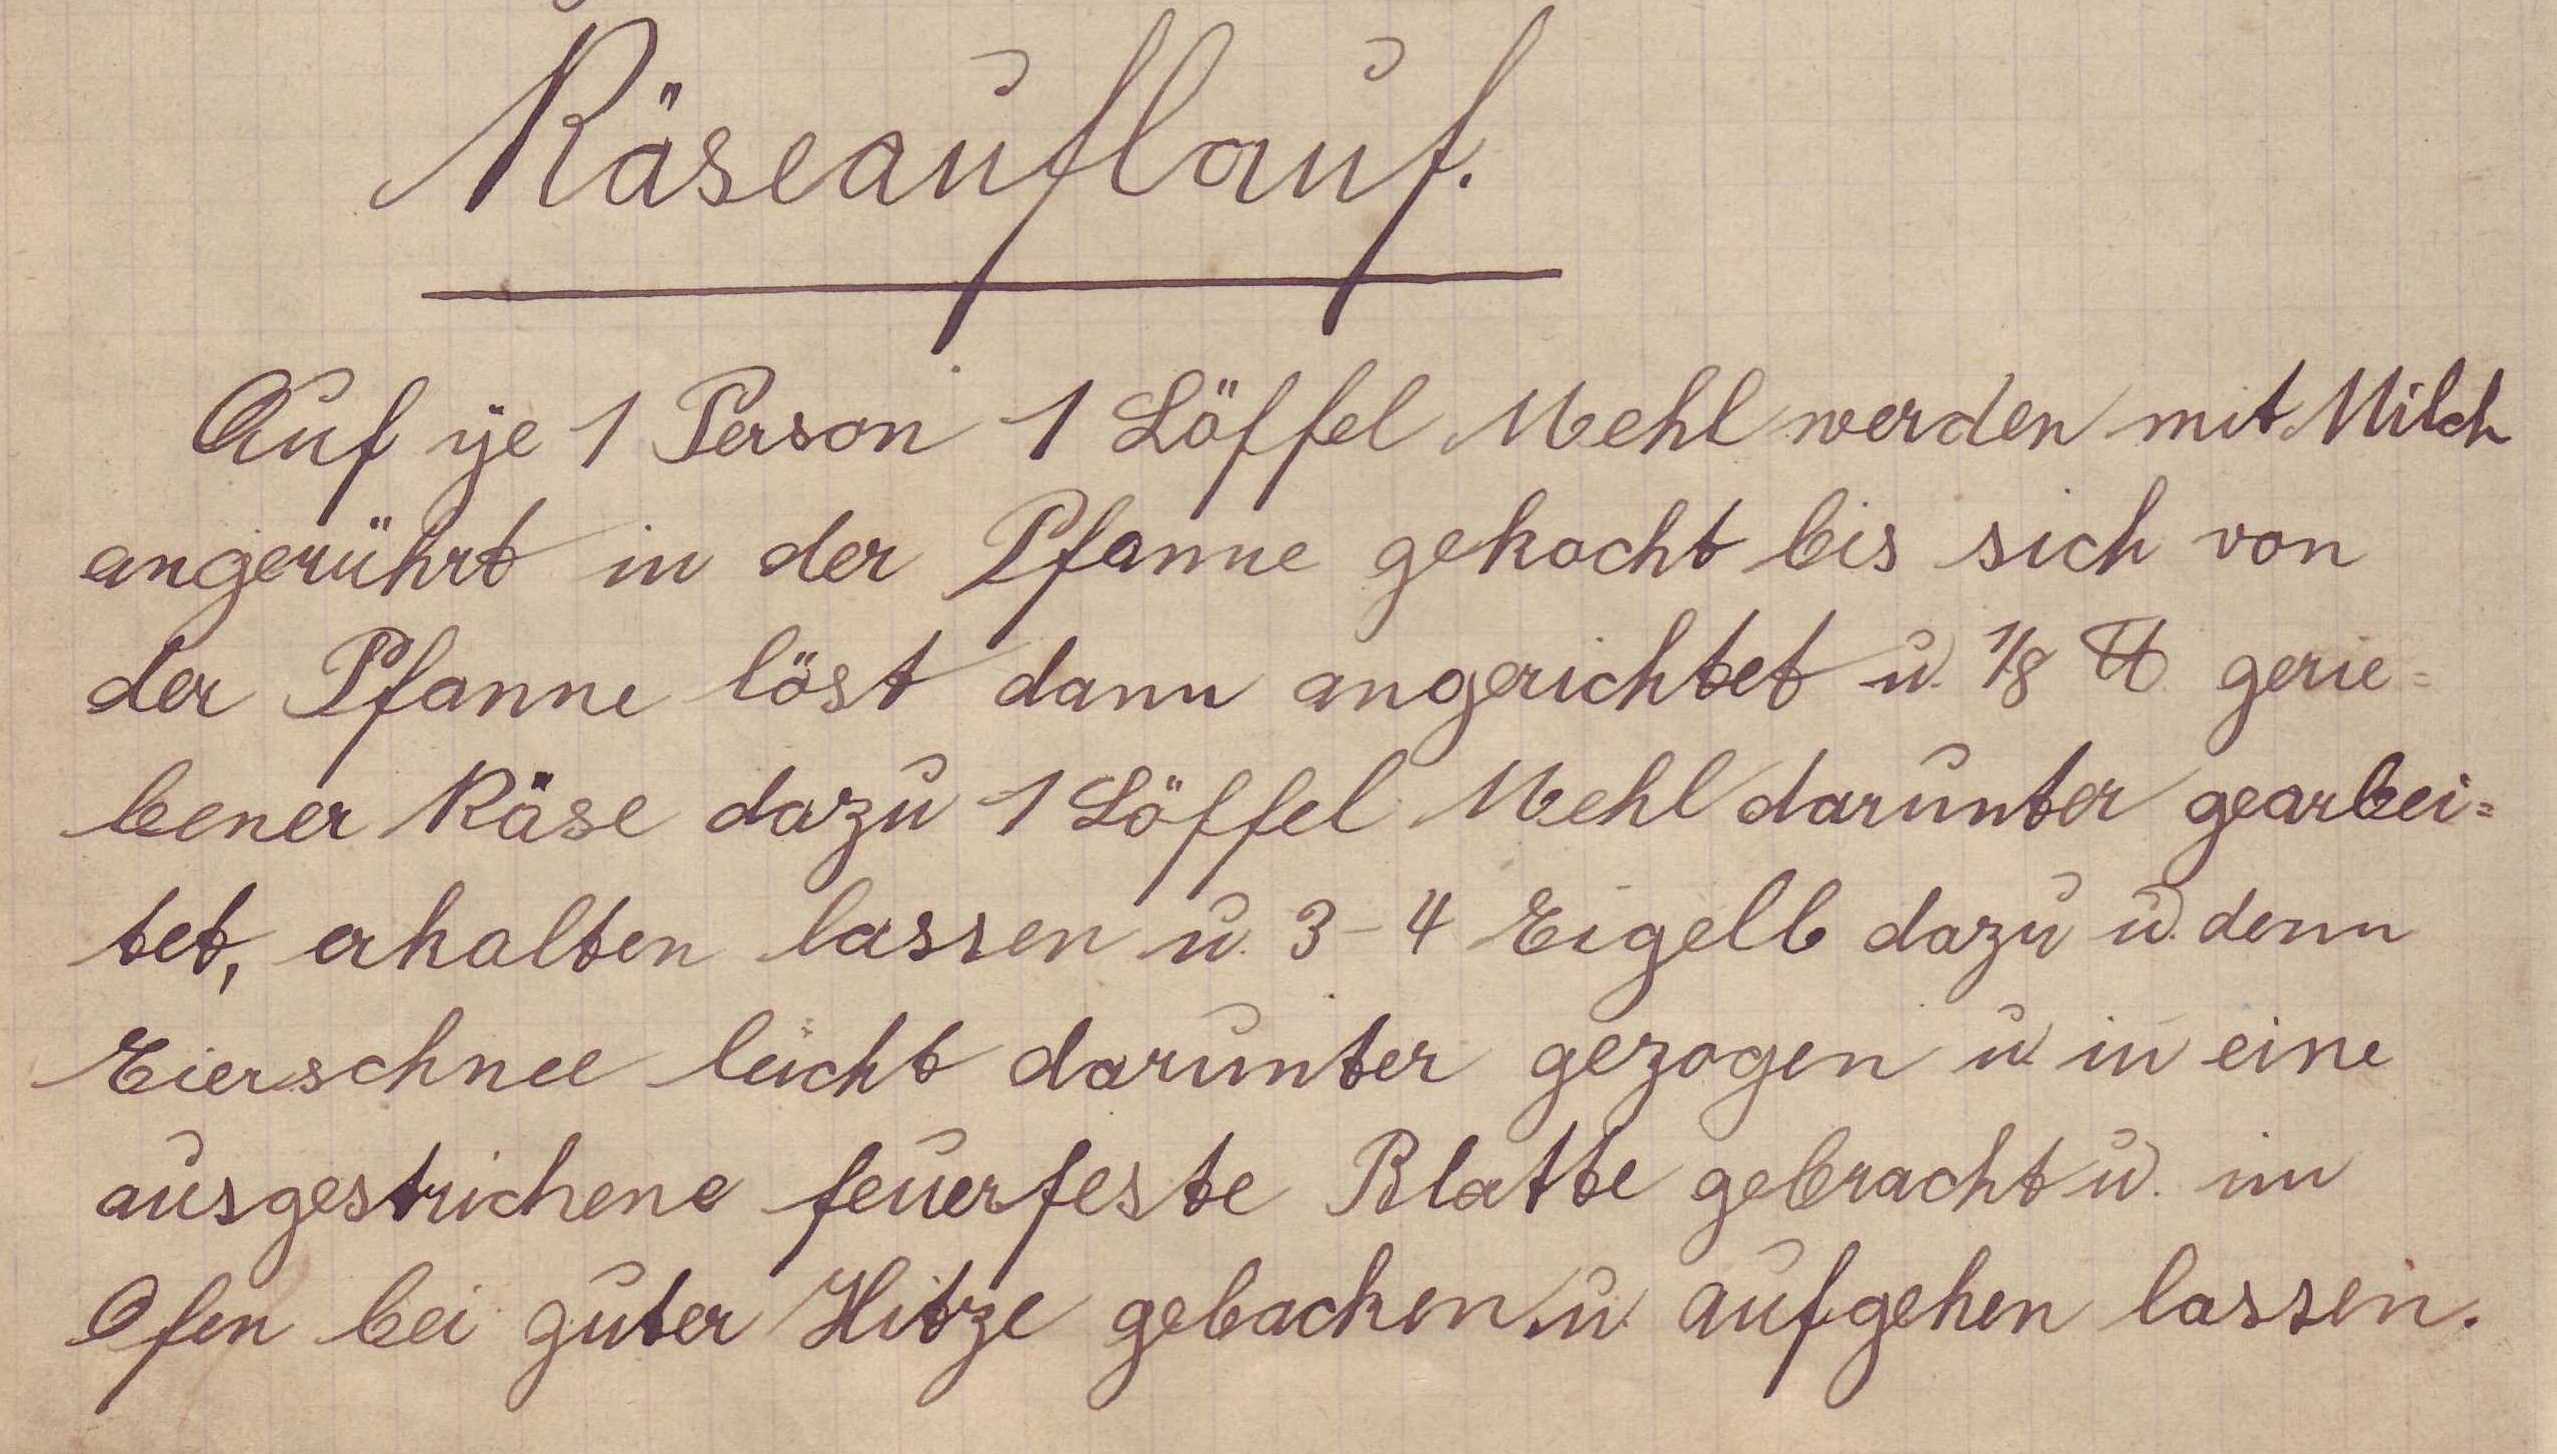 Käseauflauf.
Auf je 1 Person 1 Löffel Mehl werden mit Milch
angerührt in der Pfanne gekocht bis sich von
der Pfanne löst dann angerichtet u. 1/8 ℔ gerie=
bener Käse dazu 1 Löffel Mehl darunter gearbei=
tet, erkalten lassen u. 3-4 Eigelb dazu u. denn
Eierschnee leicht darunter gezogen u. in eine
ausgestrichene feuerfeste Blatte gebracht u. im
Ofen bei guter Hitze gebacken u. aufgehen lassen.